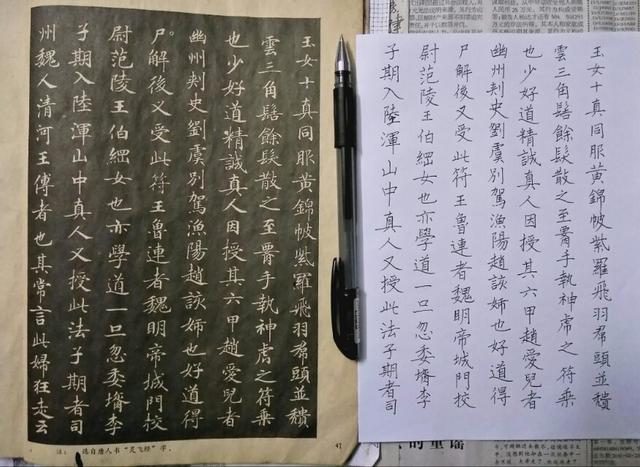 玉女十真同服黃錦帔紫羅飛羽帬頭並穨
雲三角髻餘髮散之至署手執神虎之符乗
也少好道精誠真人因授其六甲趙愛兒者
幽州刾史劉虞別駕漁陽趙該姉也好道得
尸解後又受此符王魯連者魏明帝城門校
尉范陵王伯綱女也亦學道一旦忽委壻李
子期入陸渾山中真人又授此法子期者司
州魏人清河王傅者也其常言此婦狂走云
注：选自唐人书“灵飞经”字。
47
玉女十真同服黃錦帔紫羅飛羽帬頭並穨
雲三角髻餘髮散之至署手執神虎之符乗
也少好道精誠真人因授其六甲趙愛兒者
幽州刾史劉虞別駕漁陽趙該姉也好道得
尸解後又受此符王魯連者魏明帝城門校
尉范陵王伯綱女也亦學道一旦忽委壻李
子期入陸渾山中真人又授此法子期者司
的童谣